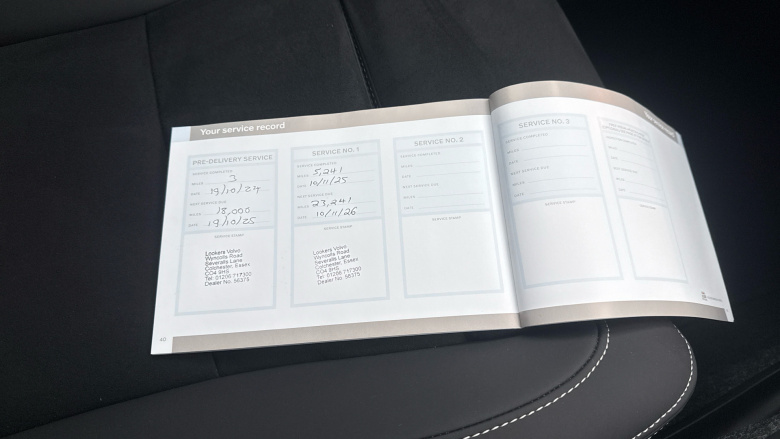 Your service record
PRE-DELIVERY SERVICE
SERVICE COMPLETED
MILES 3
DATE 19/10/24
NEXT SERVICE DUE
MILES 18,000
DATE 19/10/25
SERVICE STAMP
Lookers Volvo
Wyncolls Road
Severalls Lane
Colchester, Essex
CO4 9HS
Tel: 01206 717300
Dealer No. 56375
SERVICE NO. 1
SERVICE COMPLETED
MILES 5,241
DATE 10/11/25
NEXT SERVICE DUE
MILES 23,241
DATE 10/11/26
SERVICE STAMP
Lookers Volvo
Wyncolls Road
Severalls Lane
Colchester, Essex
CO4 9HS
Tel: 01206 717300
Dealer No. 56375
SERVICE NO. 2
SERVICE COMPLETED
MILES
DATE
NEXT SERVICE DUE
MILES
DATE
SERVICE STAMP
SERVICE NO. 3
SERVICE COMPLETED
MILES
DATE
NEXT SERVICE DUE
MILES
DATE
SERVICE STAMP
40